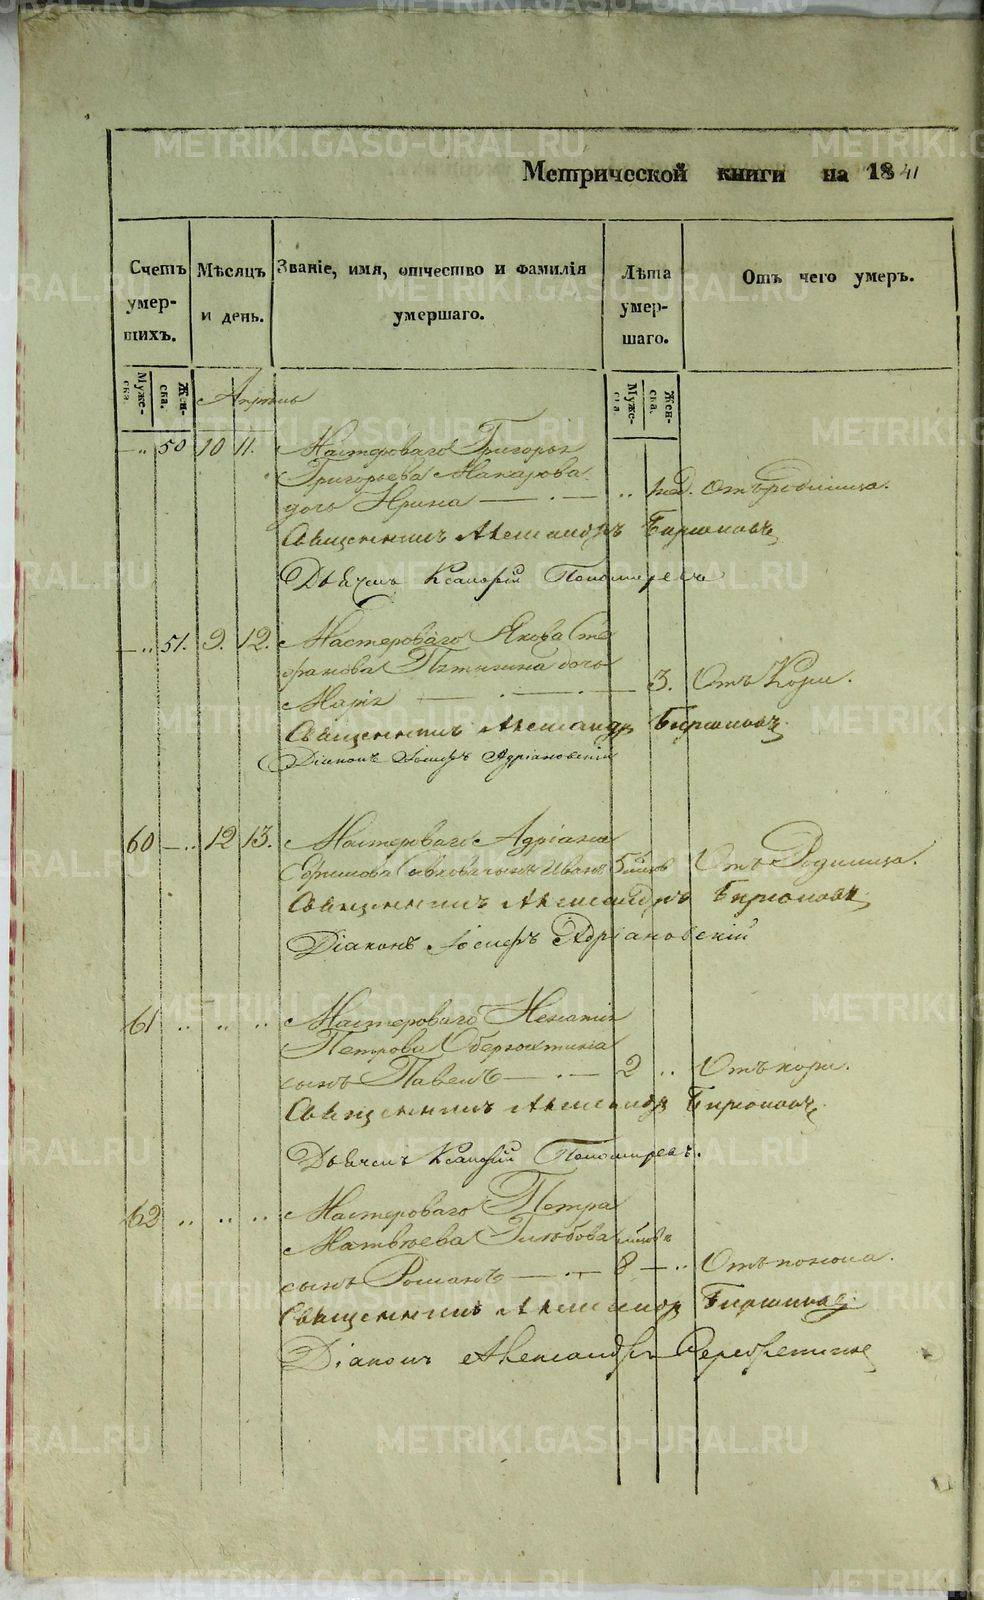 Метрической книги на 1841
Счетъ умер-шихъ.
Мѣсяцъ и день.
Званіе, имя, отчество и фамилія умершаго.
Лѣта умер-шаго.
Отъ чего умеръ.
Муже-ска.
Жен-ска.
Муже-ска
Жен-ска.
Апрѣль
— „ 50 10 11. Мастероваго Григорья
Григорьева Макарова
дочь Ирина — . — „ нед. Отъ родимца.
Священникъ Александръ Бирюковъ
Дьячекъ Пономаревъ
— „ 51. 9. 12. Мастероваго Якова Сте
фанова дочь
Марія — . — 3. Отъ Кори.
Священникъ Александръ Бирюковъ
Діаконъ Іосифъ Адріановскій
60 — „ 12 13. Мастероваго Адріана
Ефимова сынъ Иванъ 5 Отъ Родимца.
Священникъ Александръ Бирюковъ
Діаконъ Іосифъ Адріановскій
61 „ „ „ Мастероваго Игнатія
Петрова
сынъ Павелъ — . — 2 „ Отъ кори.
Священникъ Александръ Бирюковъ
Дьячекъ Пономаревъ.
62 „ „ „ Мастероваго Петра
Матвѣева Глѣбова
сынъ Романъ — . — 8 — „ Отъ поноса.
Священникъ Александръ Бирюковъ
Діаконъ Александръ
METRIKI.GASO-URAL.RU